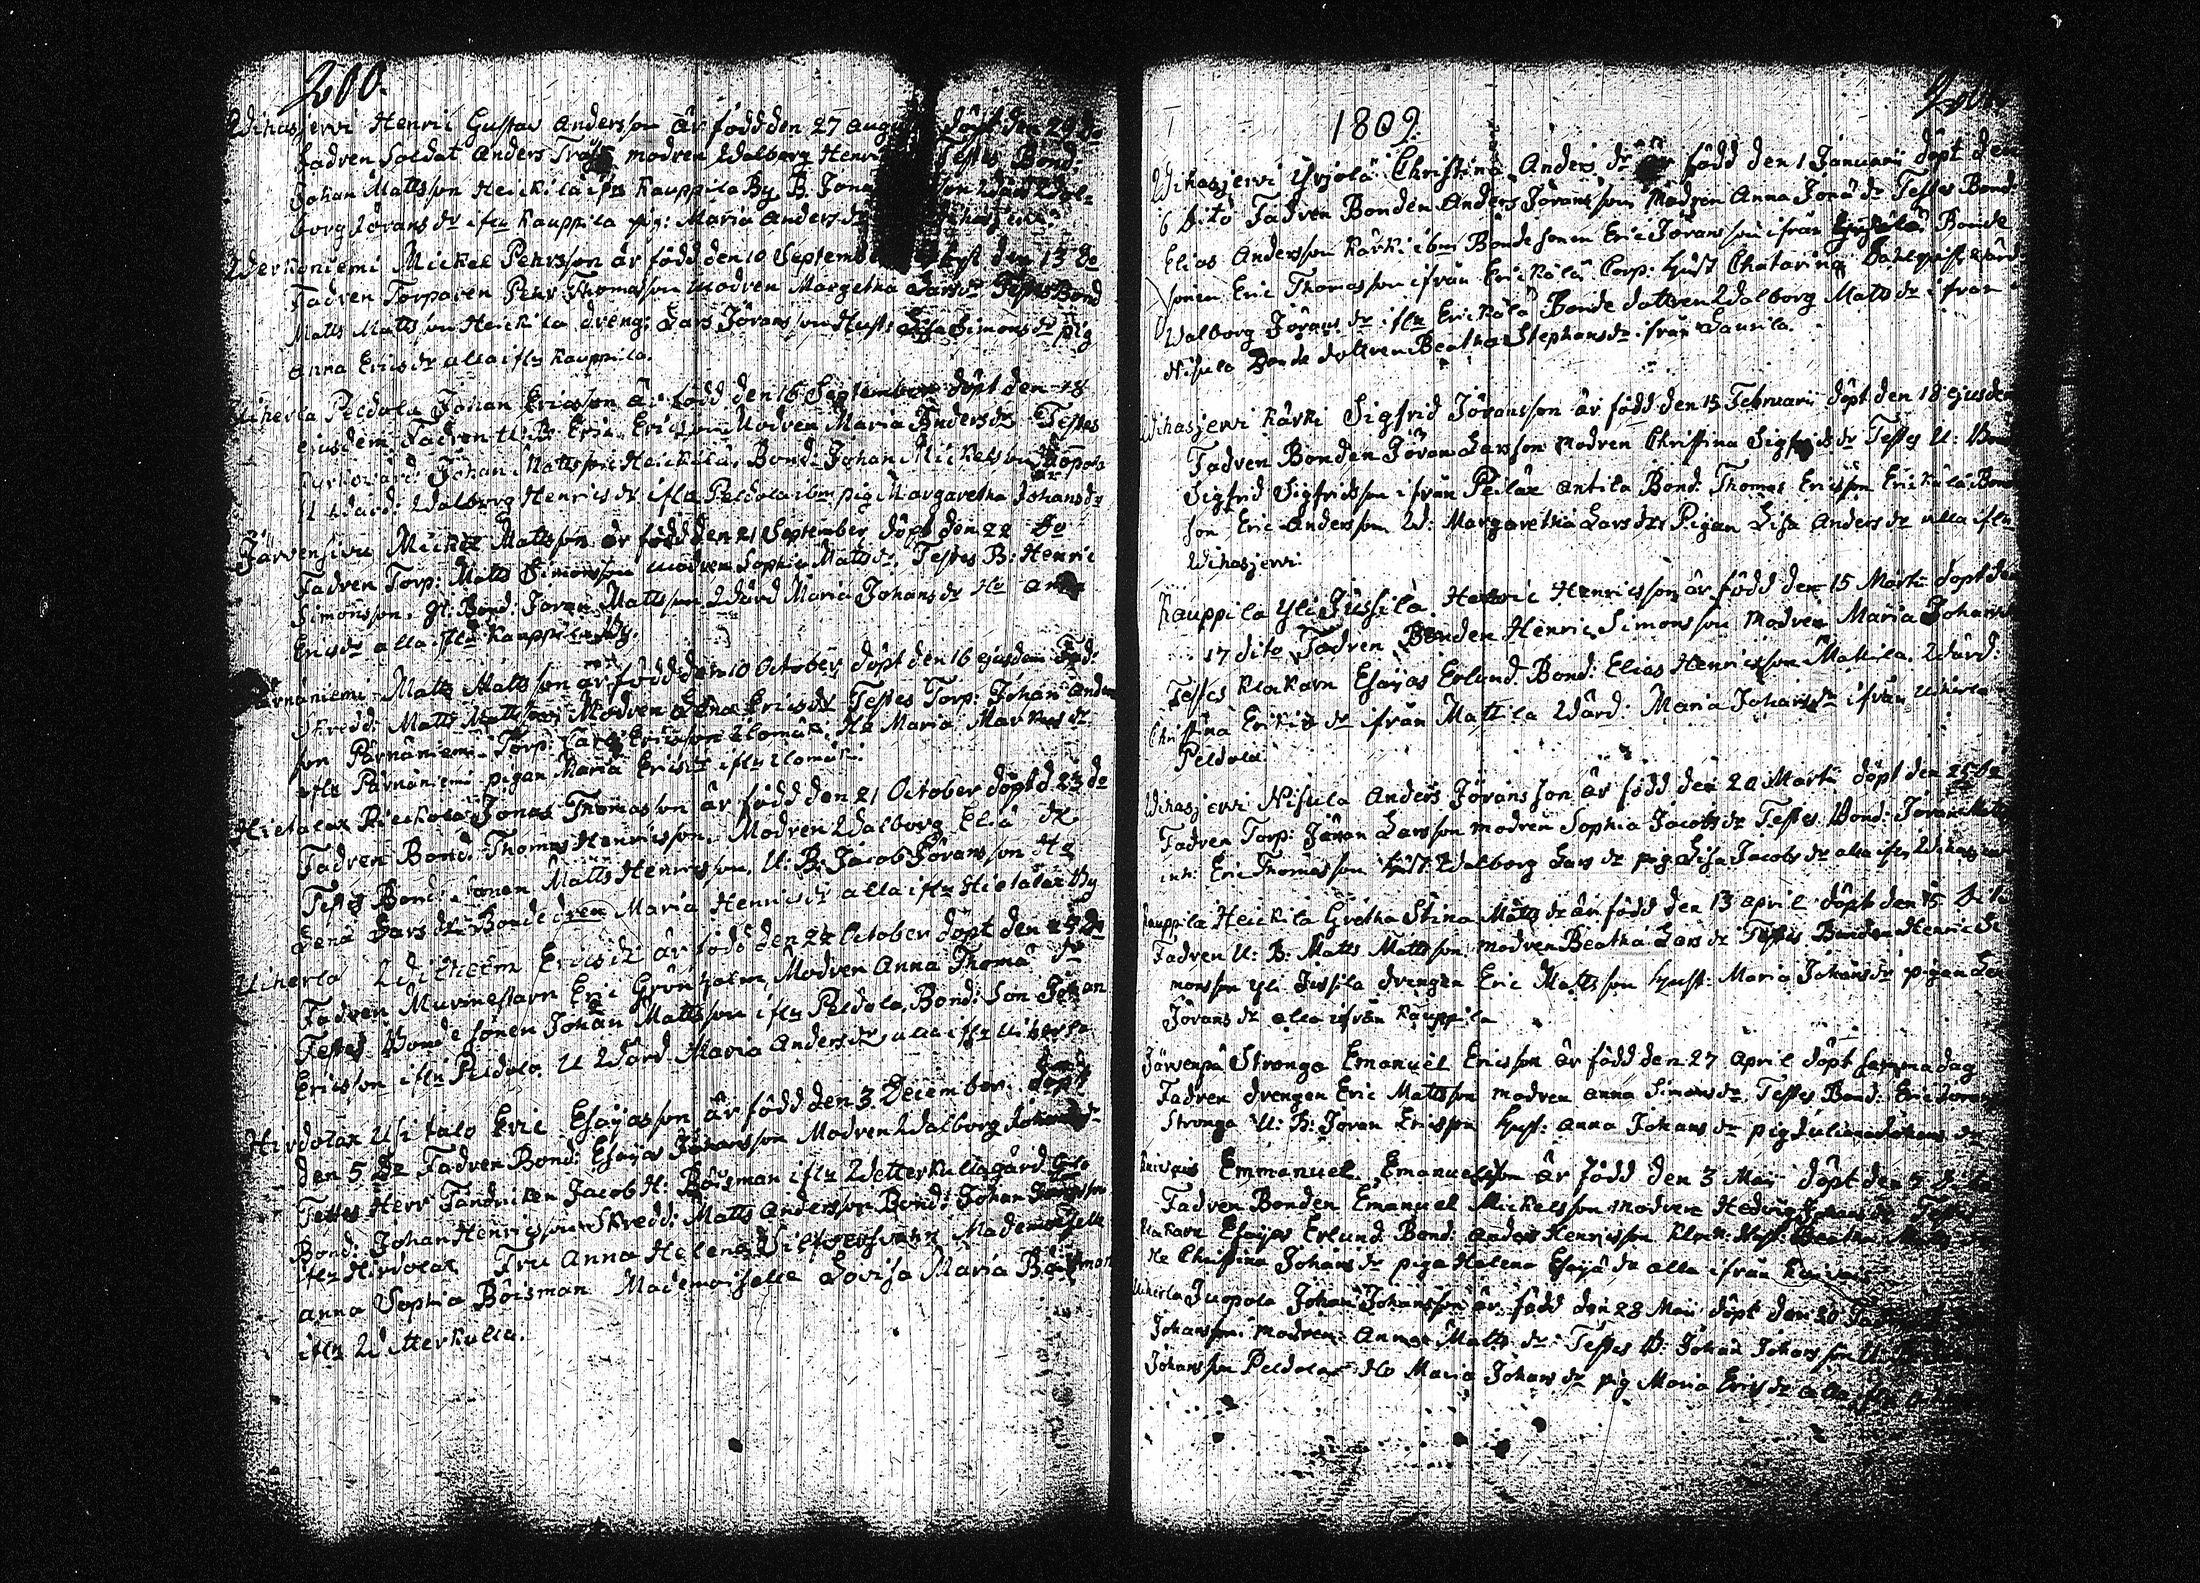 200.
Wihasjervi Henric Gustav Andersson är född den 27 Aug döpt den 29 do
Fadren Soldat Anders modren Walborg Henr Testes Bond:
Johan Mattsson Heickila ifrn Kauppila By B. Jona
borg Jörans dr ifrn Kauppila pig: Maria Anders dr
Werkaniemi Mickel Pehrsson är född den 10 Septemb den 13 do
Fadren Torparen Pehr Thomasson modren Margetha Lars dr Testes Bond
Matts Mattsson Heickila dreng: Lars Jöransson Hust: Lisa Simons dr pig
Anna Erics dr alla ifrn Kauppila.
Uiherla Peldola Johan Ericsson är född den 16 September döpt den 18
ejusdem Fadren U: B: Eric Ericsson Modren Maria Anders dr Testes
Kyrkovärd: Johan Mattsson Heickilä, Bond: Johan Mickelsson
U Wärd: Walborg Henrics dr ifrn Peldola ibm pig Margaretha Johans dr
Järvensivu Mickel Mattsson är född den 21 September döpt den 22 do
Fadren Torp: Matts Simonsson modren Sophia Matts dr. Testes B: Henric
Simonsson, gl: Bond: Jöran Mattsson Wärd Maria Johans dr Hu Anna
Erics dr alla ifrn Kauppila By.
Pärnäniemi Matts Mattsson är född den 10 October döpt den 16 ejusdem Fad:
Skredd: Matts Mattsson Modren Lena Erics dr Testes Torp: Johan Anders
son Pärnäniemi Torp: Carl Ericsson Ha Maria Marcus dr
ifrn Pärnäniemi pigan Maria Erics dr ifrn
Hietalax Rieckola Jonas Thomasson är född den 21 October döpt d 23 do
Fadren Bond: Thomas Henricsson, Modren Walborg Eliæ dr
Testes Bond: Sonen Matts Henricsson, U: B: Jacob Jöransson Ha
Lena Lars dr Bondedren Maria Henrics dr alla ifrn Hietalax By
Uiherla Wilhelm Erics dr är född den 24 October döpt den 25 do
Fadren Murmestarn Eric Grönholm, Modren Anna Thomæ dr
Testes Bonde sonen Johan Mattsson ifrn Peldola, Bond: Son Johan
Ericsson ifrn Peldola. U Wärd Maria Anders dr alla ifrn Uiherla
Hirdolax Usi talo Eric Esajasson är född den 3 December döpt
den 5 do Fadren Bond: Esajas Johansson Modren Walborg Johans dr
Testes Herr Fendricken Jacob H: Böisman ifrn Wetterkulla gård
Bond: Johan Henricsson Skredd: Matts Andersson Bond: Johan
ifrn Hirdolax Fru Anna Helena Mademoiselle
Anna Sophia Böisman Mademoiselle Lovisa Maria Böisman
ifrn Wetterkulla.
1809.
Wihasjervi Yrjölä Christina Anders dr är född den 1 Januarii döpt den
6 dito Fadren Bonden Anders Jöransson Modren Anna Jonæ dr Testes Bond:
Elias Andersson Kärki ibm Bonde sonen Eric Jöransson ifrån Bonde
sonen Eric Thomasson ifrån Erickälä Corp: Hust Chatarina Dahlqvist
Walborg Jörans dr ifrn Erickälä Bonde dottren Walborg Matts dr ifrån
Nisula Bonde dottren Beatha Stephans dr ifrån Laurila.
Wihasjervi Kärki Sigfrid Jöransson är född den 15 Februarii döpt den 18 ejusdem
Fadren Bonden Jöran Larsson Modren Christina Sigfrids dr Testes U: Bon
Sigfrid Sigfridsson ifrån Peilax Antila Bond: Thomas Ericsson Erickälä Bon
son Eric Andersson W: Margaretha Lars dr Pigan Lisa Anders dr alla ifrn
Wihasjervi.
Kauppila Yli Jussila Henric Henricsson är född den 15 Marti döpt den
17 dito Fadren Bonden Henric Simonsson modren Maria Johans
Testes Klockarn Esajas Erlund. Bond: Elias Henricsson Mattila. Wärd:
Christina Erikis dr ifrån Mattila Wärd: Maria Johans dr ifrån Uiherla
Peldola.
Wihasjervi Nisula Anders Jöransson är född den 20 Martii döpt den 25 do
Fadren Torp: Jöran Larsson modren Sophia Jacobs dr Testes Bond: Jöran Matts
inh: Eric Thomasson Hust: Walborg Lars dr pig Lisa Jacobs dr alla ifrn Wihasjervi
Kauppila Heickila Gretha Stina Matts dr är född den 13 April döpt den 15 dito
Fadren U: B: Matts Mattsson modren Beatha Lars dr Testes Bonden Henric Si
monsson Yli Jussila drengen Eric Mattsson hust: Maria Johans dr pigan Len
Jörans dr alla ifrån Kauppila
Järvenpä Stronga Emanuel Ericsson är född den 27 April döpt samma dag
Fadren drengen Eric Mattsson modren Anna Simons dr. Testes Bond: Eric Jörans
Stronga U: B: Jöran Ericsson Hust: Anna Johans dr pig Juliana Johans dr
Koivais Emmanuel Emanuelsson är född den 3 Maij döpt den 5 dito
Fadren Bonden Emanuel Mickelsson modren Hedvig Johans dr Testes
Klockare Esajas Erlund Bond: Anders Henricsson Klock: Hust: Beatha
Ha Christina Johans dr piga Helena Esajæ dr alla ifrån Koivais
Uiherla Juopola Johan Johansson är född den 28 Maii döpt den 30
Johansson modren Anna Matts dr Testes B: Johan Johansson U:
Johansson Peldola Ha Maria Johans dr pig Maria Erics dr alla ifrn